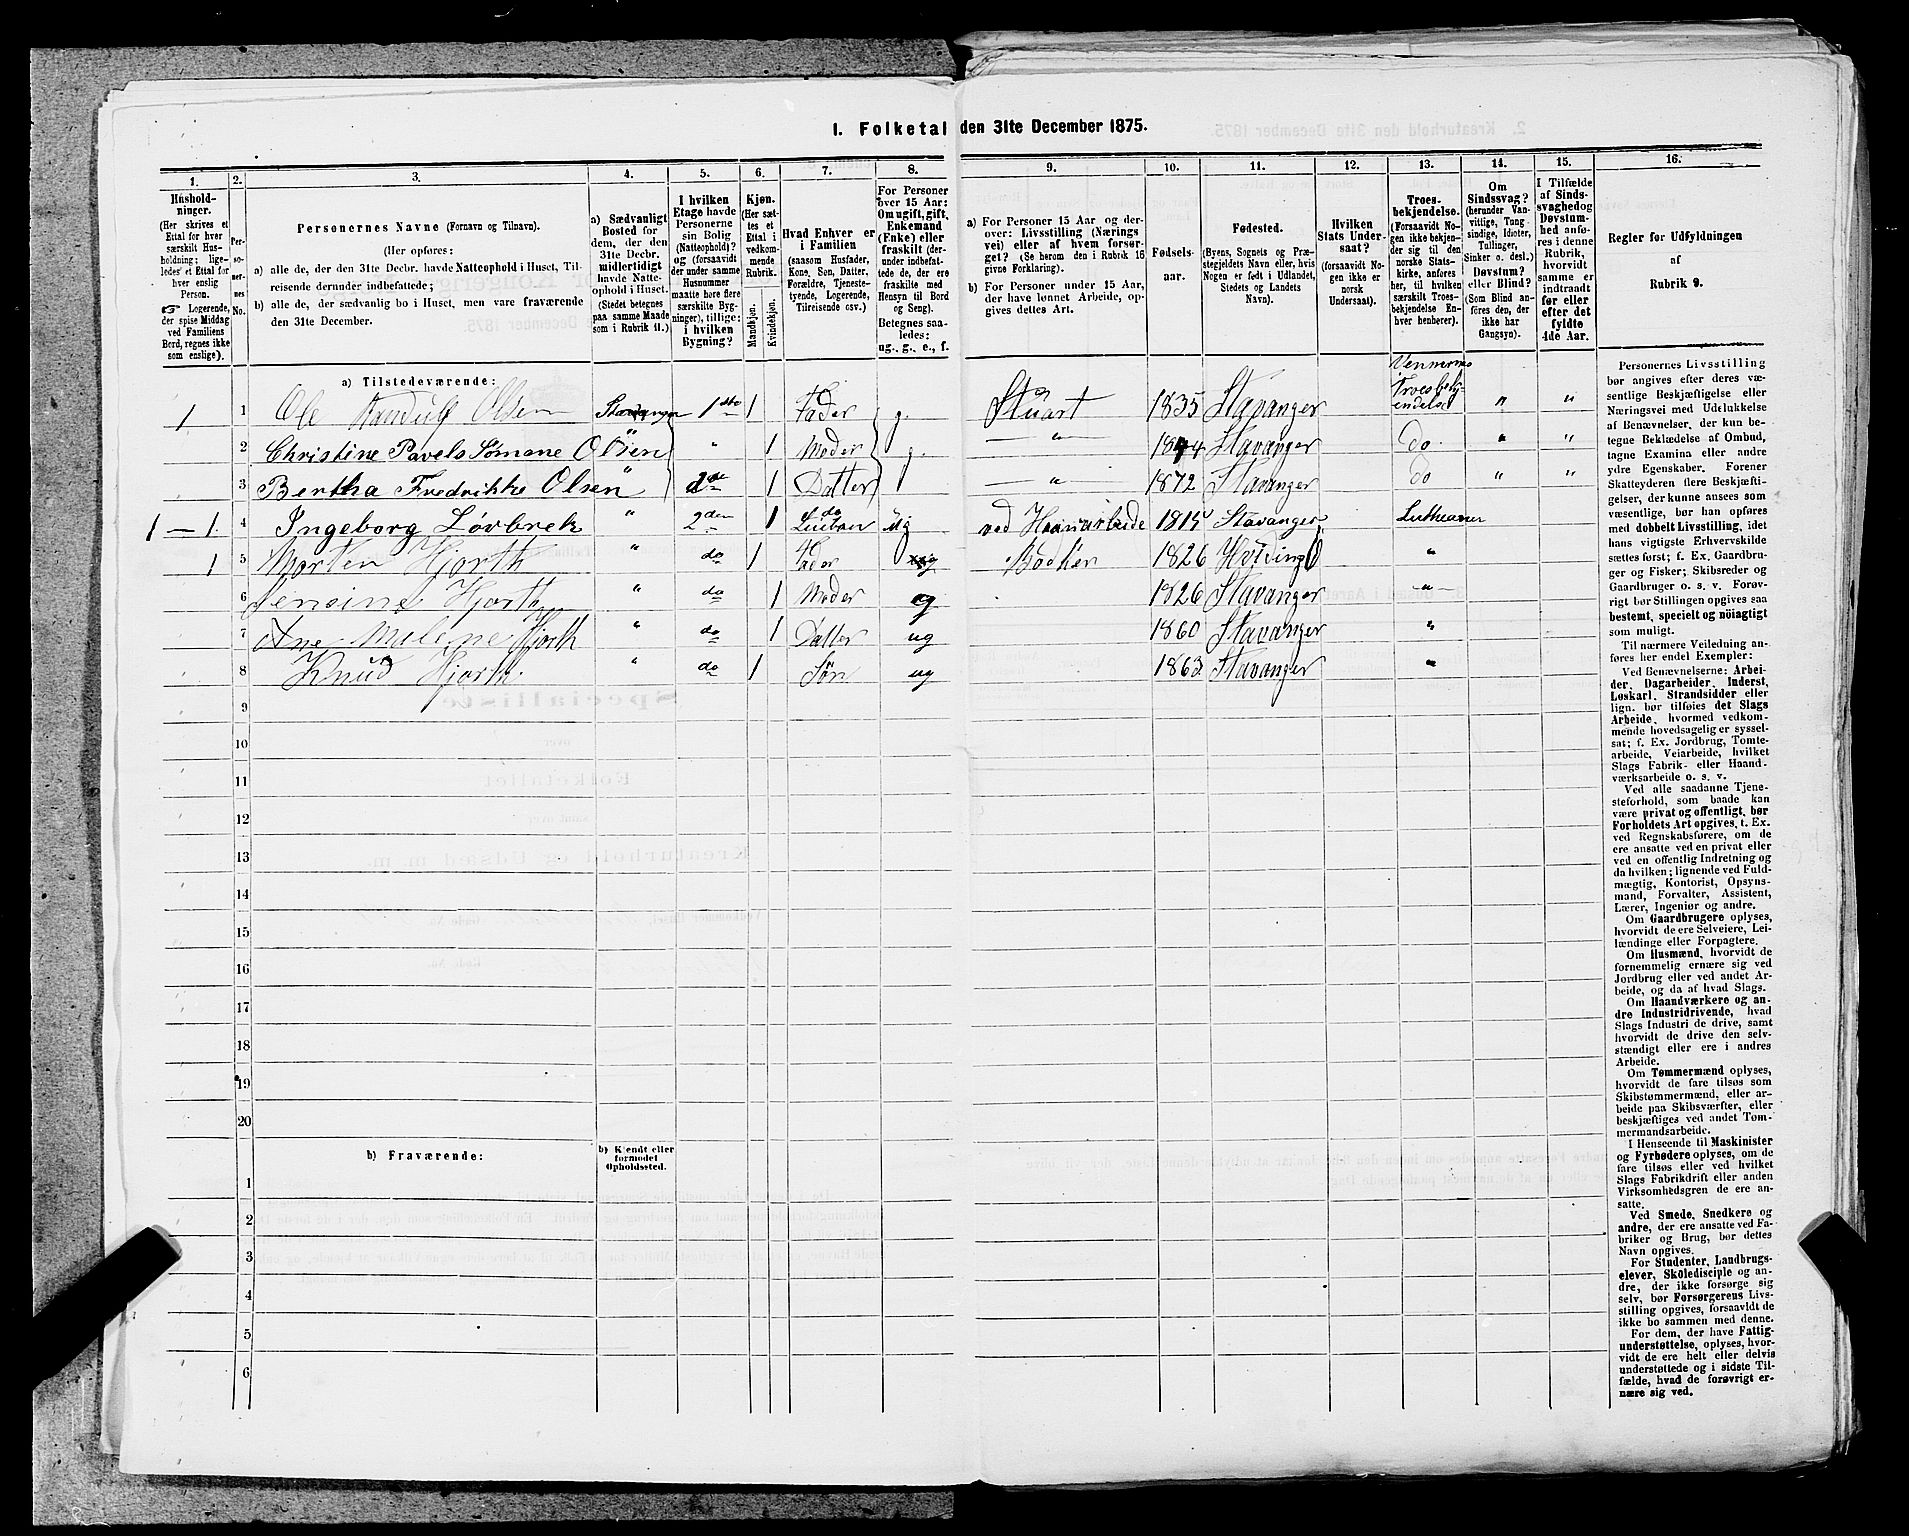 1. Folketal den 31te December 1875.
1. 2. 3. 4. 5. 6. 7. 8. 9. 10. 11. 12. 13. 14. 15. 16.
Husholdninger.
(Her skrives et
Ettal for hver
særskilt Husholdning;
ligeledes et Ettal for
hver enslig
Person.
Logerende,
der spise Middag
ved Familiens
Bord, regnes ikke
som enslige).
Personernes No.
Personernes Navne (Fornavn og Tilnavn).
(Her opføres:
a) alle de, der den 31te Decbr. havde Natteophold i Huset, Tilreisende derunder indbefattede;
b) alle de, der sædvanlig bo i Huset, men vare fraværende
den 31te December.
a) Sædvanligt
Bosted for
dem, der den
31te Decbr.
midlertidigt
havde Natteophold i Huset.
(Stedet betegnes
paa samme Maade
som i Rubrik 11.)
I hvilken
Etage havde
Personerne
sin Bolig
(Natteophold)?
og (forsaavidt
der under samme
Husnummer
maatte høre flere
særskilte Bygninger), tillige:
i hvilken
Bygning?
Kjøn.
(Her sættes et
Ettal i
vedkommende
Rubrik.
Mandkjøn.
Kvindekjøn.
Hvad Enhver er
i Familien
(saasom Husfader,
Kone, Søn, Datter,
Forældre, Tjenestetyende, Logerende,
Tilreisende osv.)
For Personer
over 15 Aar:
Om ugift, gift,
Enkemand
(Enke) eller
fraskilt (derunder indbefattede de, der ere
fraskilte med
Hensyn til Bord
og Seng).
Betegnes saaledes:
ug., g., e., f.
a) For Personer 15 Aar og derover: Livsstilling (Næringsvei) eller af hvem forsørget? (Se herom den i Rubrik 16
givne Forklaring).
b) For Personer under 15 Aar,
der have lønnet Arbeide, opgives dettes Art.
Fødselsaar.
Fødested.
(Byens, Sognets og Præstegjeldets Navn eller, hvis
Nogen er født i Udlandet,
Stedets og Landets
Navn).
Hvilken
Stats Undersaat?
(forsaavidt Nogen ikke er
norsk
Undersaat).
Troesbekjendelse.
(Forsaavidt Nogen ikke bekjender sig til den
norske Statskirke, anføres
her, til hvilken
særskilt Troesbekjendelse Enhver henhører).
Om
Sindssvag?
(herunder Vanvittige, Tungsindige, Idioter,
Tullinger,
Sinker o. desl.)
Døvstum?
eller Blind?
(Som Blind anføres den, der
ikke har
Gangsyn).
I Tilfælde
af Sindssvaghed og
Døvstumhed anføres i denne
Rubrik,
hvorvidt
samme er
indtraadt
før eller
efter det
fyldte
4de Aar.
Regler for Udfyldningen
af
Rubrik 9.
a) Tilstedeværende:
1 1 Ole Randulf Olsen Stavanger 1ste 1 Fader g. Stuart 1835 Stavanger Vennernes Troesbekjendelse " "
2 Christine Pavels Sømane Olsen " " 1 Moder g. " 1844 Stavanger do " "
3 Bertha Fredrikke Olsen " 1 Datter " 1872 Stavanger do " "
1 – 1 4 Ingeborg Løvbrek " 2den 1 ug ved Haanarbeide 1815 Stavanger Lutheaner
1 5 Morten Hjorth " do 1 Fader Bødker 1826 Hvidingsø "
6 Jensine Hjorth " do 1 Moder g 1826 Stavanger "
7 Ane Malene Hjorth " do 1 Datter ug 1860 Stavanger "
8 Knud Hjorth " do 1 Søn ug 1863 Stavanger "
9
10
11
12
13
14
15
16
17
18
19
20
b) Fraværende: b) Kjendt eller
formodet
Opholdssted.
1
2
3
4
5
6
Personernes Livsstilling
bør angives efter deres væsentlige Beskjæftigelse eller
Næringsvei med Udelukkelse
af Benævnelser, der kun betegne Beklædelse af Ombud,
tagne Examina eller andre
ydre Egenskaber. Forener
Skatteyderen flere Beskjæftigelser, der kunne ansees som
væsentlige, bør han opføres
med dobbelt Livsstilling, idet
hans vigtigste Erhvervskilde
sættes først; f. Ex. Gaardbruger og Fisker; Skibsreder og
Gaardbruger o. s. v. Forøvrigt bør Stillingen opgives saa
bestemt, specielt og nöiagtigt
som muligt.
Til nærmere Veiledning anføres her endel Exempler:
Ved Benævnelserne: Arbeider, Dagarbeider, Inderst,
Løskarl, Strandsidder eller
lign. bør tilføies det Slags
Arbeide, hvormed vedkommende hovedsagelig er sysselsat; f. Ex. Jordbrug, Tomtearbeide, Veiarbeide, hvilket
Slags Fabrik- eller Haandværksarbeide o. s. v.
Ved alle saadanne Tjenesteforhold, som baade kan
være privat og offentligt, bør
Forholdets Art opgives, t. Ex.
ved Regnskabsførere, om de
ere ansatte ved en privat eller
ved en offentlig Indretning og
da hvilken; lignende ved Fuldmægtig, Kontorist, Opsynsmand, Forvalter, Assistent,
Lærer, Ingeniør og andre.
Om Gaardbrugere oplyses,
hvorvidt de ere Selveiere, Leilændinge eller Forpagtere.
Om Husmænd, hvorvidt de
fornemmelig ernære sig ved
Jordbrug eller ved andet Arbeide, og da af hvad Slags.
Om Haandværkere og andre Industridrivende, hvad
Slags Industri de drive, samt
hvorvidt de drive den selvstændigt eller ere i andres
Arbeide.
Om Tømmermænd oplyses,
hvorvidt de fare tilsøs som
Skibstømmermænd, eller arbeide paa Skibsværfter, eller
beskjæftiges ved andet Tømmermandsarbeide.
I Henseende til Maskinister
og Fyrbødere oplyses, om de
fare tilsøs eller ved hvilket
Slags Fabrikdrift eller anden
Virksomhedsgren de ere ansatte.
Ved Smede, Snedkere og
andre, der ere ansatte ved Fabriker og Brug, bør dettes
Navn opgives.
For Studenter, Landbrugselever, Skoledisciple og andre, der ikke forsørge sig
selv, bør Forsørgerens Livsstilling opgives, forsaavidt de
ikke bo sammen med denne.
For dem, der have Fattigunderstøttelse, oplyses, hvorvidt de ere helt eller delvis
understøttede og i sidste Tilfælde, hvad de forøvrigt ernære sig ved.